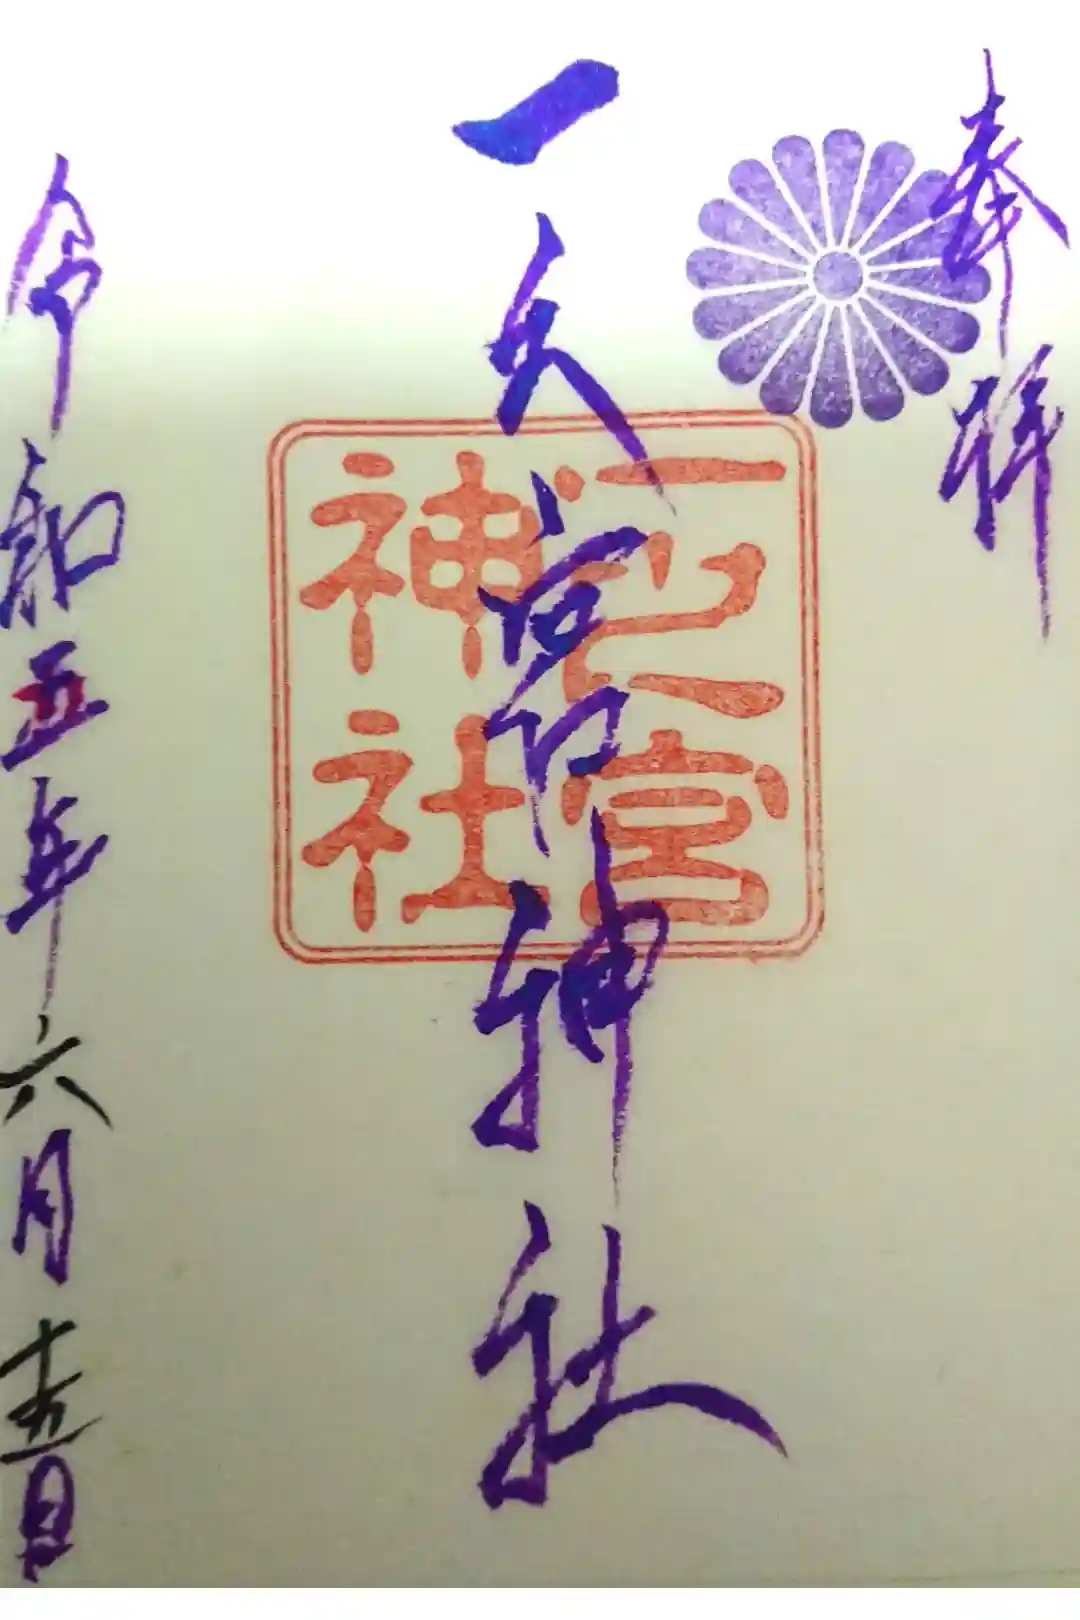 奉拝
一之宮神社
一之宮
神社
令和五年六月十五日